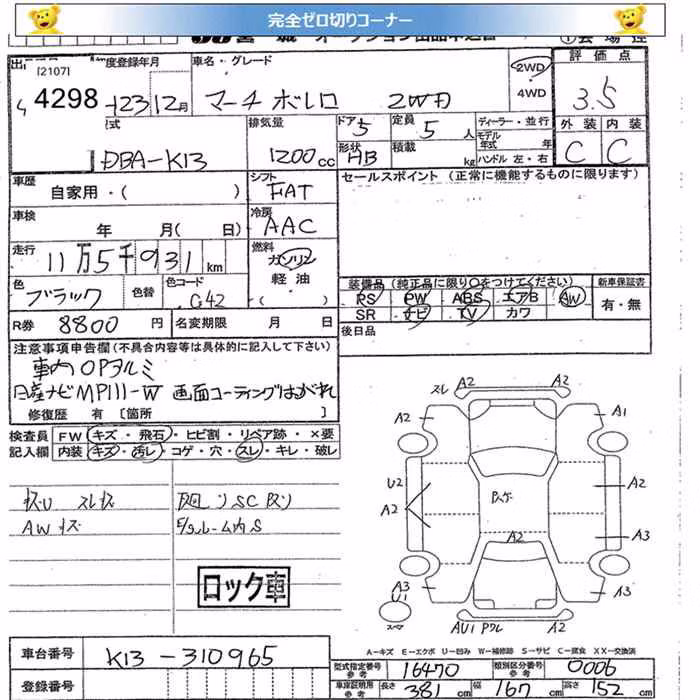 完全ゼロ切りコーナー
評価点
[2107] 年度登録年月 車名・グレード
4298 23 12月 マーチ ボレロ 2WD
2WD
4WD
3.5
外装 内装
C C
型式 排気量 ドア 定員 ディーラー・並行
DBA-K13 1200cc 5 5人
モデル年式 年
形状 HB 積載 kg ハンドル 左・右
車歴 自家用・( )
シフト FAT
セールスポイント (正常に機能するものに限ります)
車検 年 月( 日)
冷房 AAC
走行 11万5千931km
燃料 ガソリン
軽油
( )
色 ブラック 色替 色コード G42
装備品 (純正品に限り○をつけてください) 新車保証書
PS PW ABS エアB AW
SR ナビ TV カワ
有・無
R券 8800円 名変期限 月 日
後日品
注意事項申告欄(不具合内容等は具体的に記入して下さい)
車内 OPアルミ
日産ナビMP111-W 画面コーティングはがれ
修復歴 有 [箇所 ]
検査員 FW キズ・飛石・ヒビ割・リペア跡・×要
記入欄 内装 キズ・汚レ・コゲ・穴・スレ・キレ・破レ
AWキズ
ロック車
スレ A2 A2
A2 A1
U2
A2 A2
A2 A3
A3
U1 A3
AU1
A-キズ E-エクボ U-凹み W-補修跡 S-サビ C-腐食 XX-交換済
車台番号 K13-310965
登録番号
型式指定番号 参考 16470 類別区分番号 参考 0006
車庫証明用 参考 長さ 381cm 幅 167cm 高さ 152cm